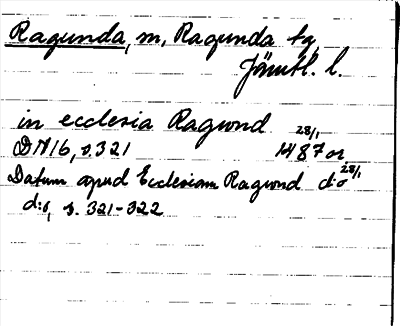 Ragunda, m, Ragunda tg,
Jämtl. l.
in ecclesia Ragwnd 28/1
DN16, s.321 1487 or.
Datum apud Ecclesiam Ragwnd d:o 28/1
d:o, s. 321-322